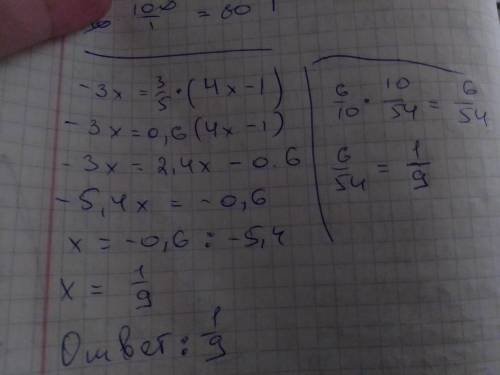 10/1 = 60
-3x = 3/5 · (4x - 1)
-3x = 0,6 (4x - 1)
-3x = 2,4x - 0.6
-5,4x = -0,6
x = -0,6 : -5,4
x = 1/9
Ответ: 1/9
6/10 · 10/54 = 6/54
6/54 = 1/9